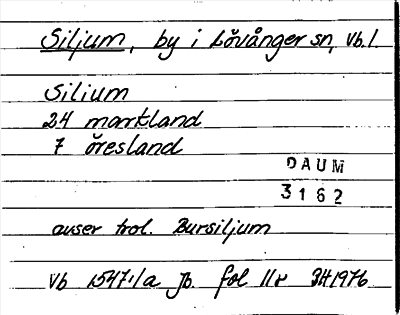 Siljum, by i Lövånger sn, Vb.l.
Silium
24 markland
7 öresland
DAUM
3162
avser trol. Bursiljum
Vb 1547:1a Jb. fol 11r 3H1976